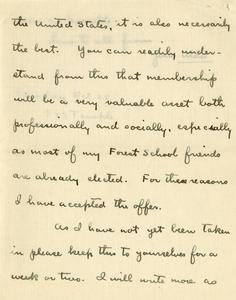 the United States, it is also necessarily
the best. You can readily under-
stand from this that membership
will be a very valuable asset both
professionally and socially, especially
as most of my Forest School friends
are already elected. For these reasons
I have accepted the offer.
As I have not yet been taken
in please keep this to yourselves for a
week or two. I will write more as